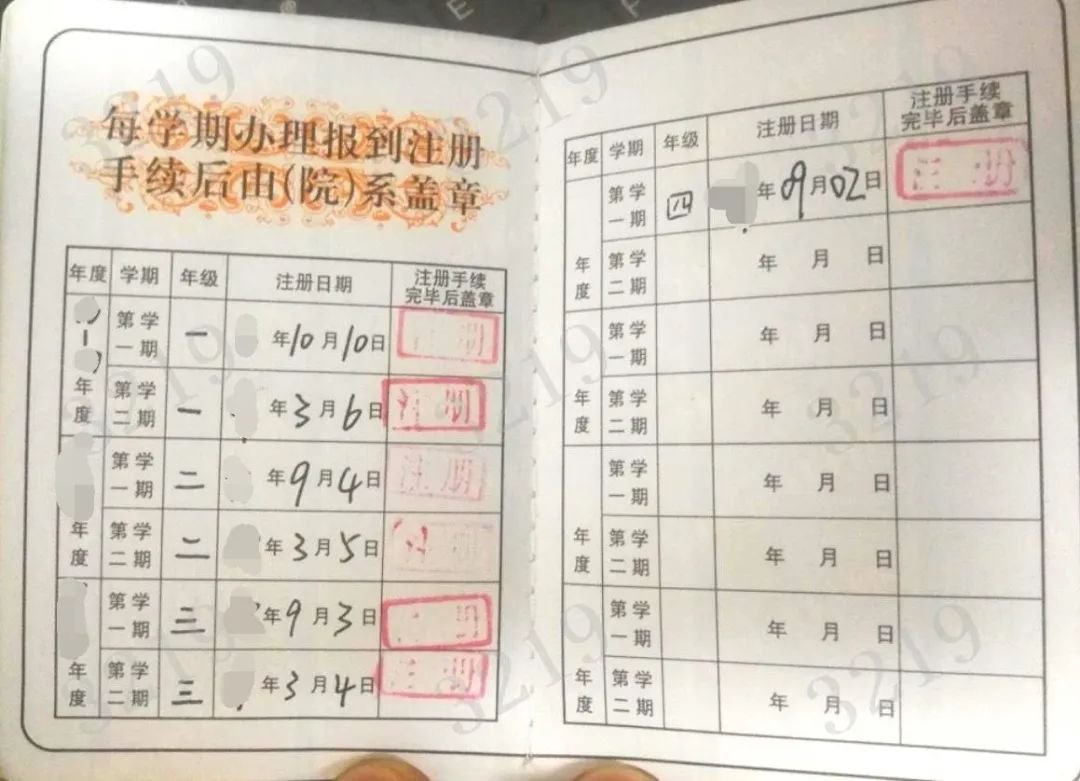 每学期办理报到注册
手续后由(院)系盖章
年度 学期 年级 注册日期 注册手续完毕后盖章
年度 第一学期 一 年10月10日 注册
第二学期 一 年3月6日 注册
年度 第一学期 二 年9月4日 注册
第二学期 二 年3月5日 注册
年度 第一学期 三 年9月3日 注册
第二学期 三 年3月4日 注册
年度 学期 年级 注册日期 注册手续完毕后盖章
年度 第一学期 四 年09月02日 注册
第二学期 年 月 日
年度 第一学期 年 月 日
第二学期 年 月 日
年度 第一学期 年 月 日
第二学期 年 月 日
年度 第一学期 年 月 日
第二学期 年 月 日
3219